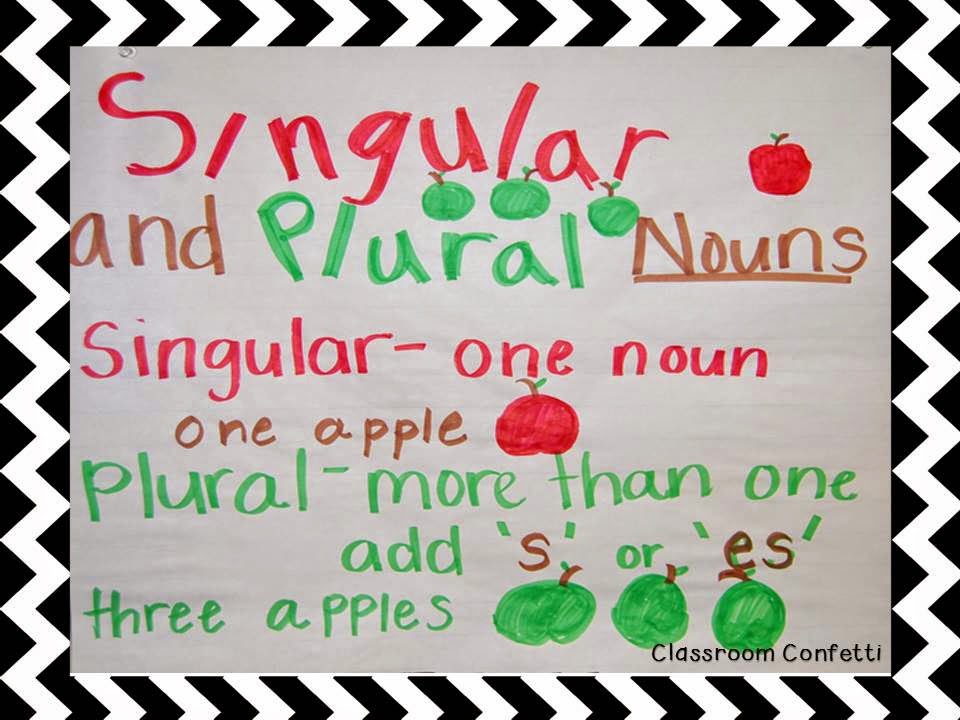 Singular
and Plural Nouns
Singular- one noun
one apple
plural- more than one
add 's' or 'es'
three apples
Classroom Confetti